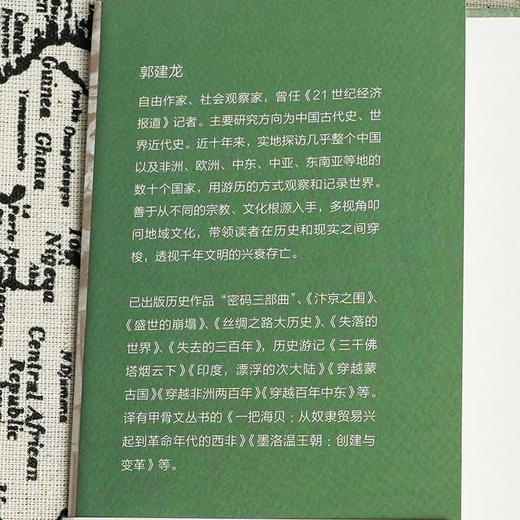 郭建龙
自由作家、社会观察家，曾任《21世纪经济
报道》记者。主要研究方向为中国古代史、世
界近代史。近十年来，实地探访几乎整个中国
以及非洲、欧洲、中东、中亚、东南亚等地的
数十个国家，用游历的方式观察和记录世界。
善于从不同的宗教、文化根源入手，多视角叩
问地域文化，带领读者在历史和现实之间穿
梭，透视千年文明的兴衰存亡。
已出版历史作品“密码三部曲”、《汴京之围》、
《盛世的崩塌》、《丝绸之路大历史》、《失落的
世界》、《失去的三百年》，历史游记《三千佛
塔烟云下》《印度，漂浮的次大陆》《穿越蒙
古国》《穿越非洲两百年》《穿越百年中东》等。
译有甲骨文丛书的《一把海贝：从奴隶贸易兴
起到革命年代的西非》《墨洛温王朝：创建与
变革》等。
Guinea
Ghana
Central African
Republic